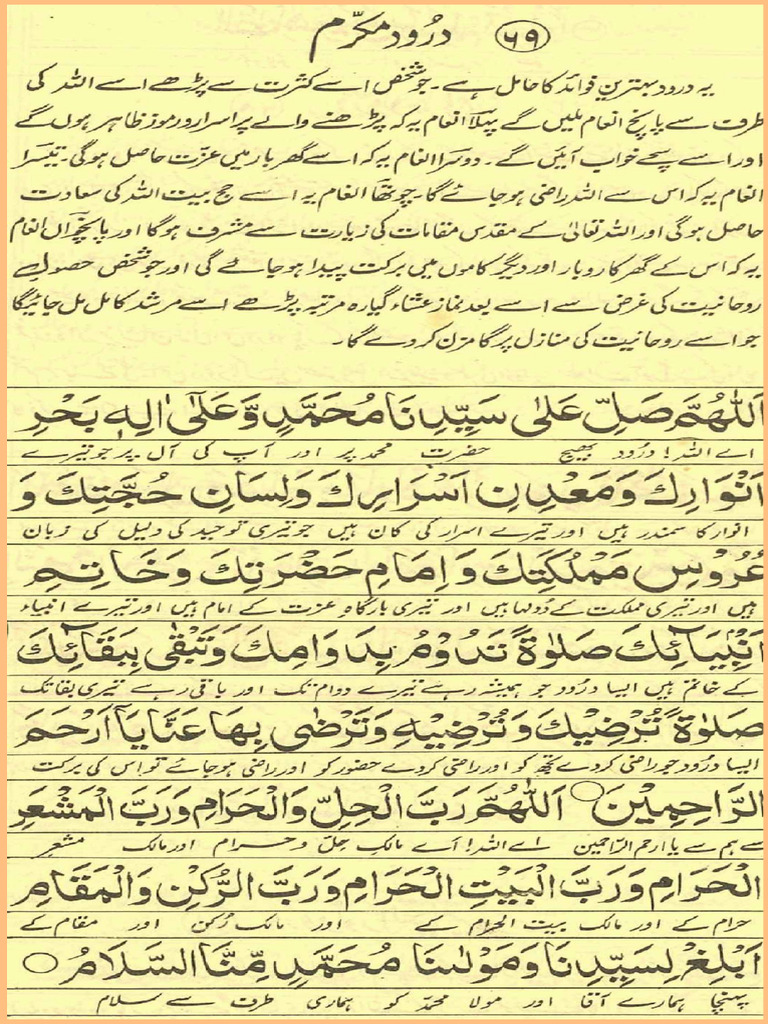 ۶۹ درُود مکرّم
یہ درود بہترین فوائد کا حامل ہے۔ جو شخص اسے کثرت سے پڑھے اسے اللہ کی
طرف سے پانچ انعام ملیں گے پہلا انعام یہ کہ پڑھنے والے پر اسرار و رموز ظاہر ہوں گے
اور اسے سچے خواب آئیں گے۔ دوسرا انعام یہ کہ اسے گھر بار میں عزّت حاصل ہوگی۔ تیسرا
انعام یہ کہ اس سے اللہ راضی ہو جائے گا۔ چوتھا انعام یہ اسے حج بیت اللہ کی سعادت
حاصل ہوگی اور اللہ تعالیٰ کے مقدس مقامات کی زیارت سے مشرف ہوگا اور پانچواں انعام
یہ کہ اس کے گھر کاروبار اور دیگر کاموں میں برکت پیدا ہو جائے گی اور جو شخص حصول
روحانیت کی غرض سے اسے بعد نماز عشاء گیارہ مرتبہ پڑھے اسے مرشد کامل مل جائیگا
جو اسے روحانیت کی منازل پر گامزن کر دے گا۔
اَللّٰهُمَّ صَلِّ عَلٰى سَيِّدِنَا مُحَمَّدٍ وَّعَلٰٓى اٰلِهٖ بَحْرِ
اے اللہ! درُود بھیج حضرت محمد پر اور آپ کی آل پر جو تیرے
اَنْوَارِكَ وَمَعْدِنِ اَسْرَارِكَ وَلِسَانِ حُجَّتِكَ وَ
انوار کا سمندر ہیں اور تیرے اسرار کی کان ہیں جو تیری توحید کی دلیل کی زبان
عُرُوْسِ مَمْلُكَتِكَ وَاِمَامِ حَضْرَتِكَ وَخَاتِمِ
ہیں اور تیری مملکت کے دُولہا ہیں اور تیری بارگاہِ عزت کے امام ہیں اور تیرے انبیاء
اَنْۢبِيَآئِكَ صَلٰوةً تَدُوْمُ بِدَوَامِكَ وَتَبْقٰى بِبَقَآئِكَ
کے خاتم ہیں ایسا درُود جو ہمیشہ رہے تیرے دوام تک اور باقی رہے تیری بقا تک
صَلٰوةً تُرْضِيْكَ وَتُرْضِيْهِ وَتَرْضٰى بِهَا عَنَّا يَآ اَرْحَمَ
ایسا درُود جو راضی کر دے تجھ کو اور راضی کر دے حضور کو اور راضی ہو جائے تو اس کی برکت
الرَّاحِمِيْنَ ۝ اَللّٰهُمَّ رَبَّ الْحِلِّ وَالْحَرَامِ وَرَبَّ الْمَشْعَرِ
سے ہم سے یا ارحم الرّاحمین اے اللہ! اے مالک حِلّ و حرام اور مالک مشعر
الْحَرَامِ وَرَبَّ الْبَيْتِ الْحَرَامِ وَرَبَّ الرُّكْنِ وَالْمَقَامِ
حرام کے اور مالک بیت الحرام کے اور مالک رُکن اور مقام کے
اَبْلِغْ لِسَيِّدِنَا وَمَوْلٰىنَا مُحَمَّدٍ مِّنَّا السَّلَامُ ۝
پہنچا ہمارے آقا اور مولا محمدؐ کو ہماری طرف سے سلام